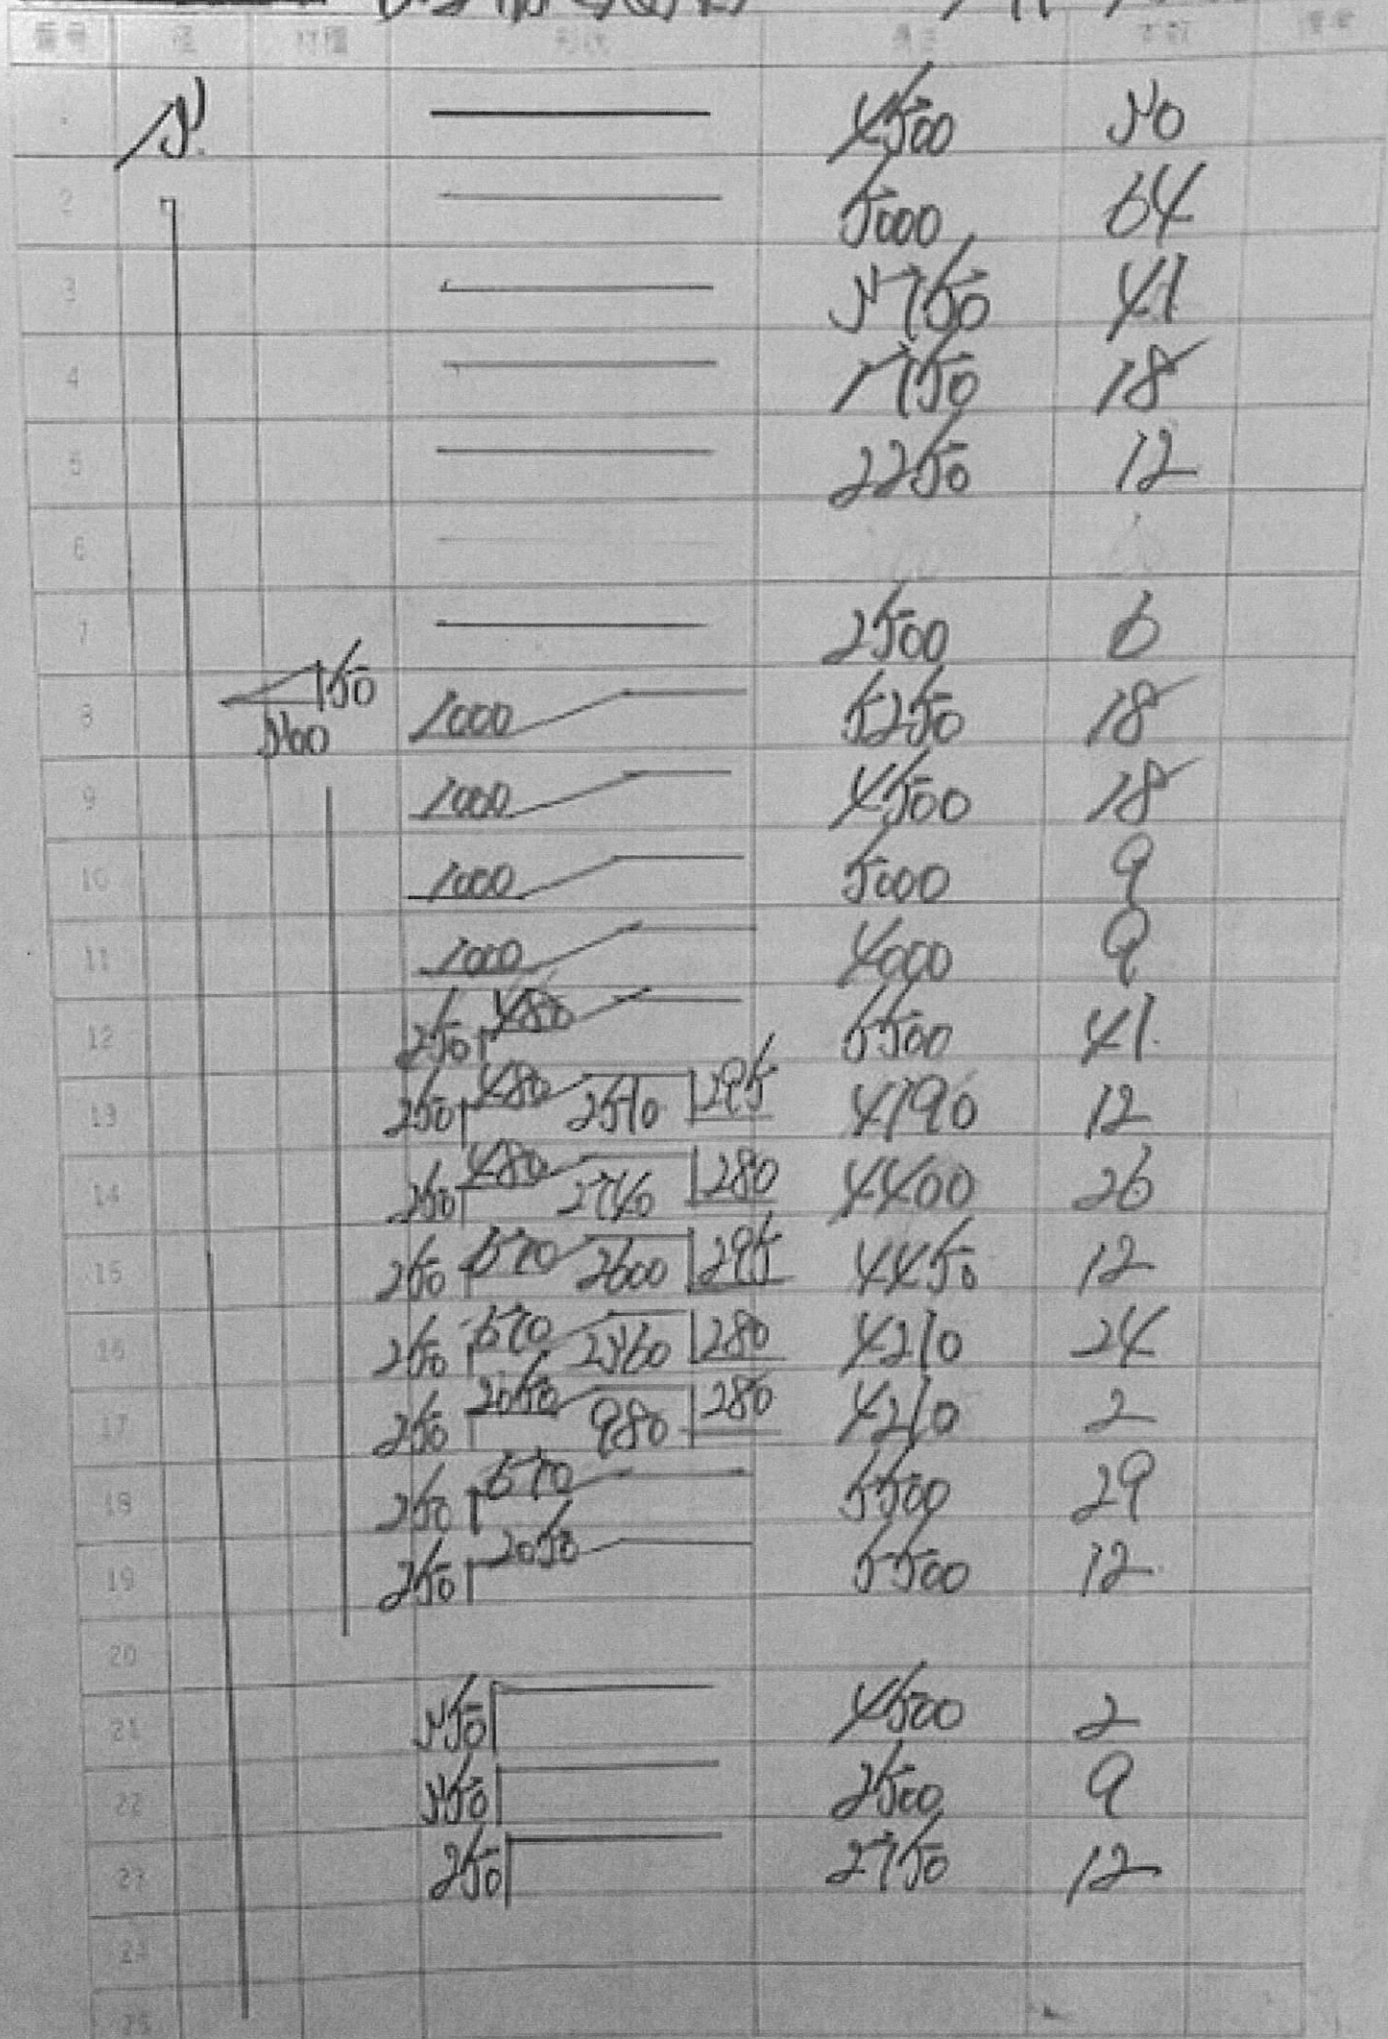 番号 径 材種 形状 長さ 本数 備考
1 13 4500 30
2 5000 64
3 3750 41
4 1750 18
5 2250 12
6
7 2500 6
150
300
8 1000 5250 18
9 1000 4500 18
10 1000 5000 9
11 1000 4000 9
12 250 480 5500 41
13 250 480 2510 295 4190 12
14 250 480 2740 280 4400 26
15 250 570 2600 295 4450 12
16 250 570 2360 280 4210 24
17 250 2050 980 280 4210 2
18 250 570 5500 29
19 250 2050 5500 12
20
21 350 4500 2
22 350 2500 9
23 250 2750 12
24
25